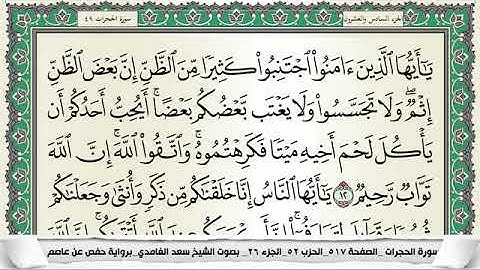 الجزء السادس والعشرون سورة الحجرات ٤٩
يَٰٓأَيُّهَا ٱلَّذِينَ ءَامَنُوا۟ ٱجْتَنِبُوا۟ كَثِيرًا مِّنَ ٱلظَّنِّ إِنَّ بَعْضَ ٱلظَّنِّ
إِثْمٌ ۖ وَلَا تَجَسَّسُوا۟ وَلَا يَغْتَب بَّعْضُكُم بَعْضًا ۚ أَيُحِبُّ أَحَدُكُمْ أَن
يَأْكُلَ لَحْمَ أَخِيهِ مَيْتًا فَكَرِهْتُمُوهُ ۚ وَٱتَّقُوا۟ ٱللَّهَ ۚ إِنَّ ٱللَّهَ
تَوَّابٌ رَّحِيمٌ ١٢ يَٰٓأَيُّهَا ٱلنَّاسُ إِنَّا خَلَقْنَٰكُم مِّن ذَكَرٍ وَأُنثَىٰ وَجَعَلْنَٰكُمْ
سورة الحجرات _الصفحة ٥١٧_الحزب ٥٢_الجزء ٢٦_ بصوت الشيخ سعد الغامدي_برواية حفص عن عاصم